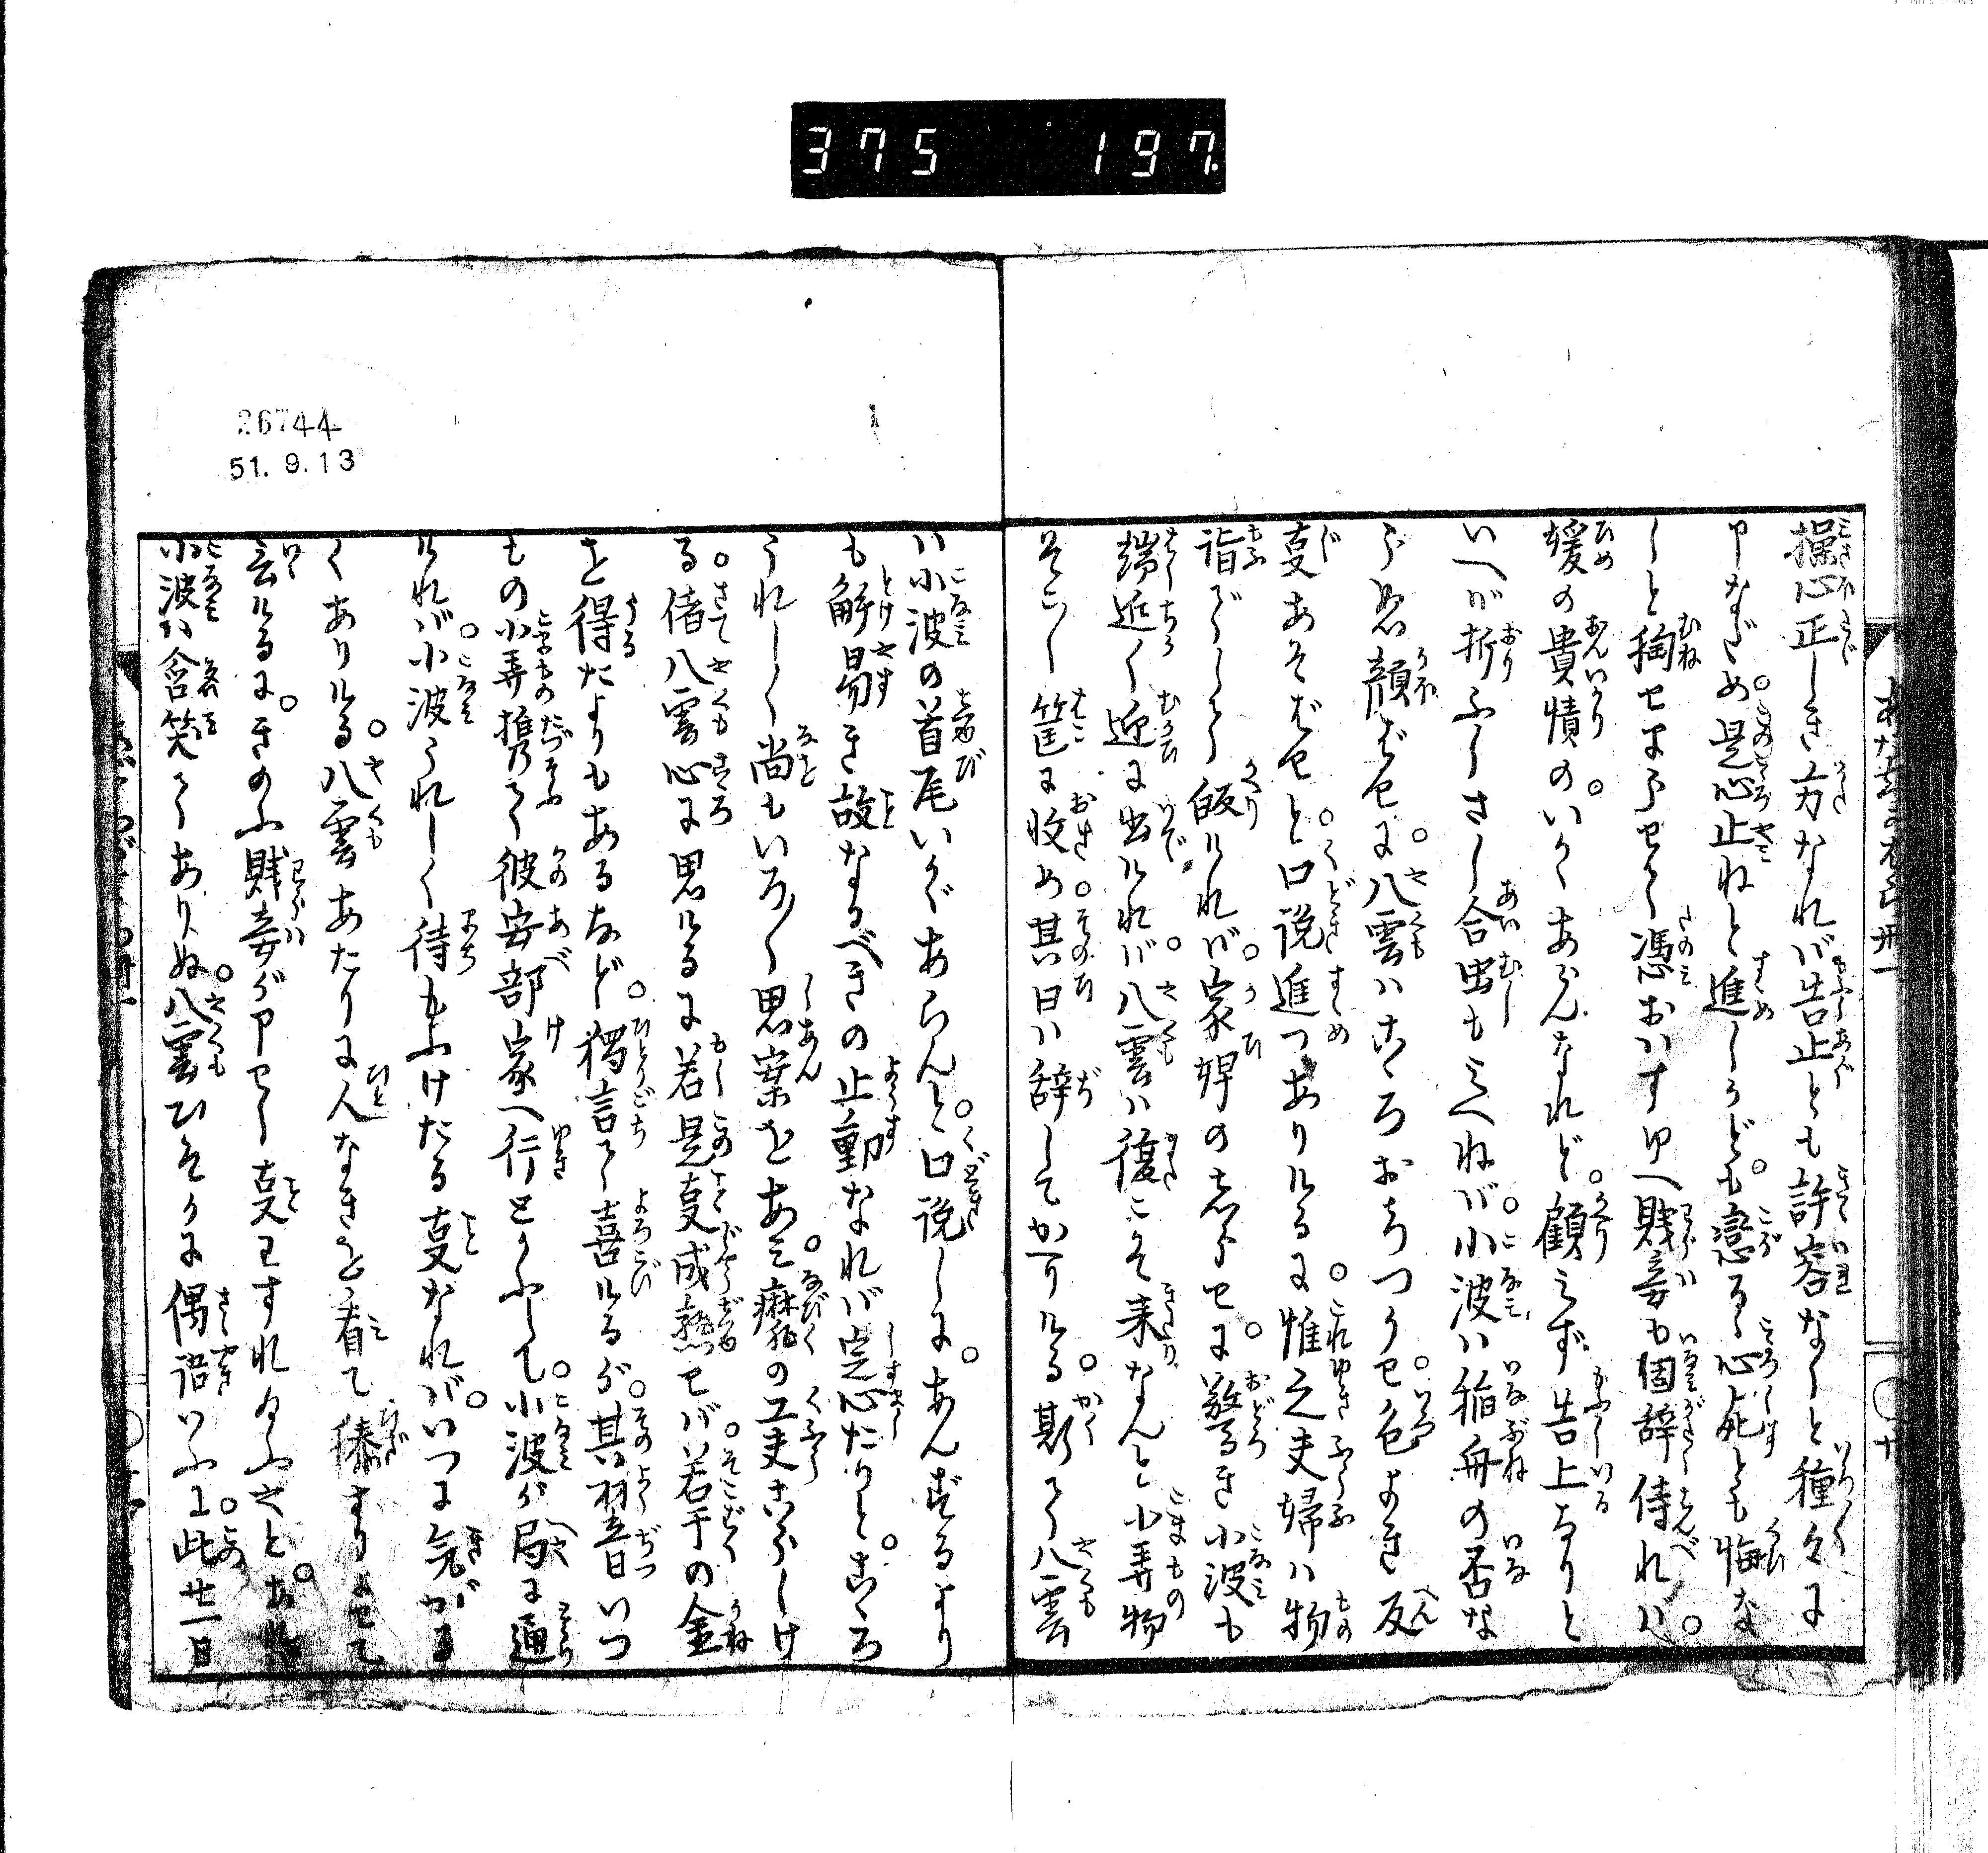 375 197.
操心正しき方なれバ告上とも許容なしと種々に
申なだめ。是心止ねと進しかども。戀る心死とも悔な
しと胸せまりせく憑おハすゆへ賤妾も固辞侍れバ。
媛の貴憤の。いかくあらんなれど。顧ミず告上なりと
いへバ折ふしさし合虫もミへねバ。小波ハ稲舟の否な
らぬ顔ばせに。八雲ハこゝろおちつかせ。色よき反
事あそばせと。口説進つありけるに。惟之夫婦ハ物
詣でしてう皈けれバ。家婢の志らせに。驚き小波も
端近く迎に出けれバ。八雲ハ復こそ来なんと小弄物
そこ〳〵筐に収め。其日ハ辞してかへりける。斯てう八雲
ハ小波の首尾いかゞあらんと。口説しに。あんずるより
も解易き故なるべきの止動なれバ定心たりと。こゝろ
うれしく尚もいろ〳〵思案をあミ。靡の工夫こらしけ
る。偖八雲心に思けるに若是事成熟せバ。若干の金
を得たよりもあるなど。獨言てう喜けるが。其翌日いつ
もの小弄携てう彼安部家へ行とかふして。小波が局に通
けれバ。小波うれしく待もふけたる事なれバ。いつに気がる
くありける。八雲あたりに人なきを看て膝すりよせて
云けるに。きのふ賤妾が申せし事わすれ給ふやと。あれバ
小波ハ含笑てうありぬ。八雲ひそかに偶語いふに。此廿一日
26744
51.9.13